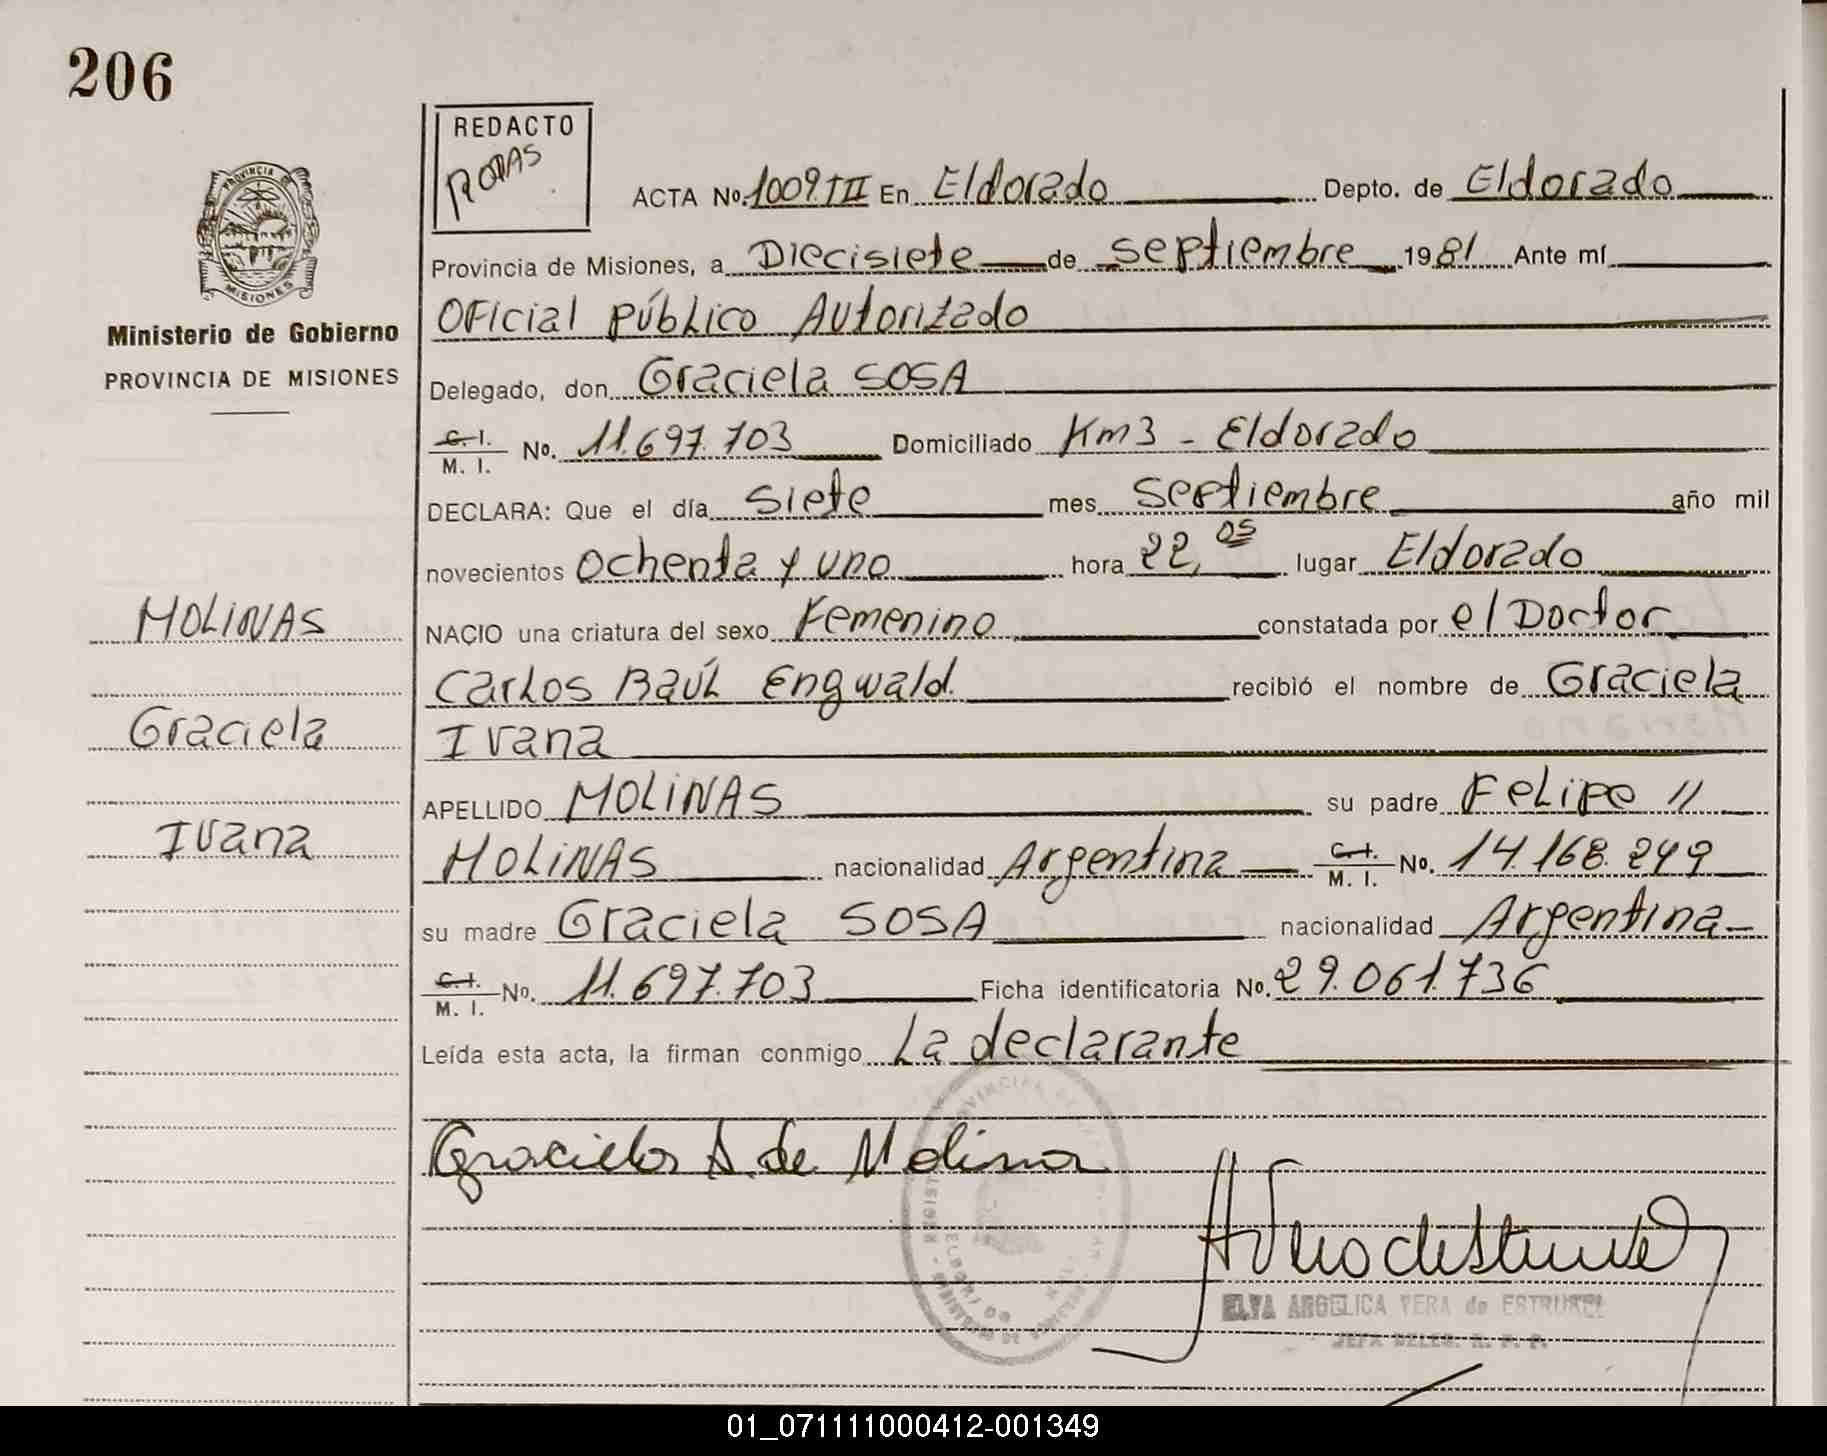 206
REDACTO
RODAS
PROVINCIA DE
MISIONES
Ministerio de Gobierno
PROVINCIA DE MISIONES
ACTA No. 1009.III En Eldorado Depto. de Eldorado
Provincia de Misiones, a Diecisiete de septiembre 1981 Ante mí
Oficial Público Autorizado
Delegado, don Graciela SOSA
C. I.
M. I. No. 11.697.703 Domiciliado Km3 - Eldorado
DECLARA: Que el día siete mes septiembre año mil
novecientos ochenta y uno hora 22,05 lugar Eldorado
MOLINAS
NACIO una criatura del sexo Femenino constatada por el Doctor
Carlos Raúl Engwald. recibió el nombre de Graciela
Graciela
Ivana
APELLIDO MOLINAS su padre Felipe //
Ivana
MOLINAS nacionalidad Argentina C. I.
M. I. No. 14.168.249
su madre Graciela SOSA nacionalidad Argentina
C. I.
M. I. No. 11.697.703 Ficha identificatoria No. 29.061.736
Leída esta acta, la firman conmigo La declarante
Graciela S. de Molina
ELVA ANGELICA VERA de ESTRUKEL
JEFA DELEG. R. P. P.
01_071111000412-001349